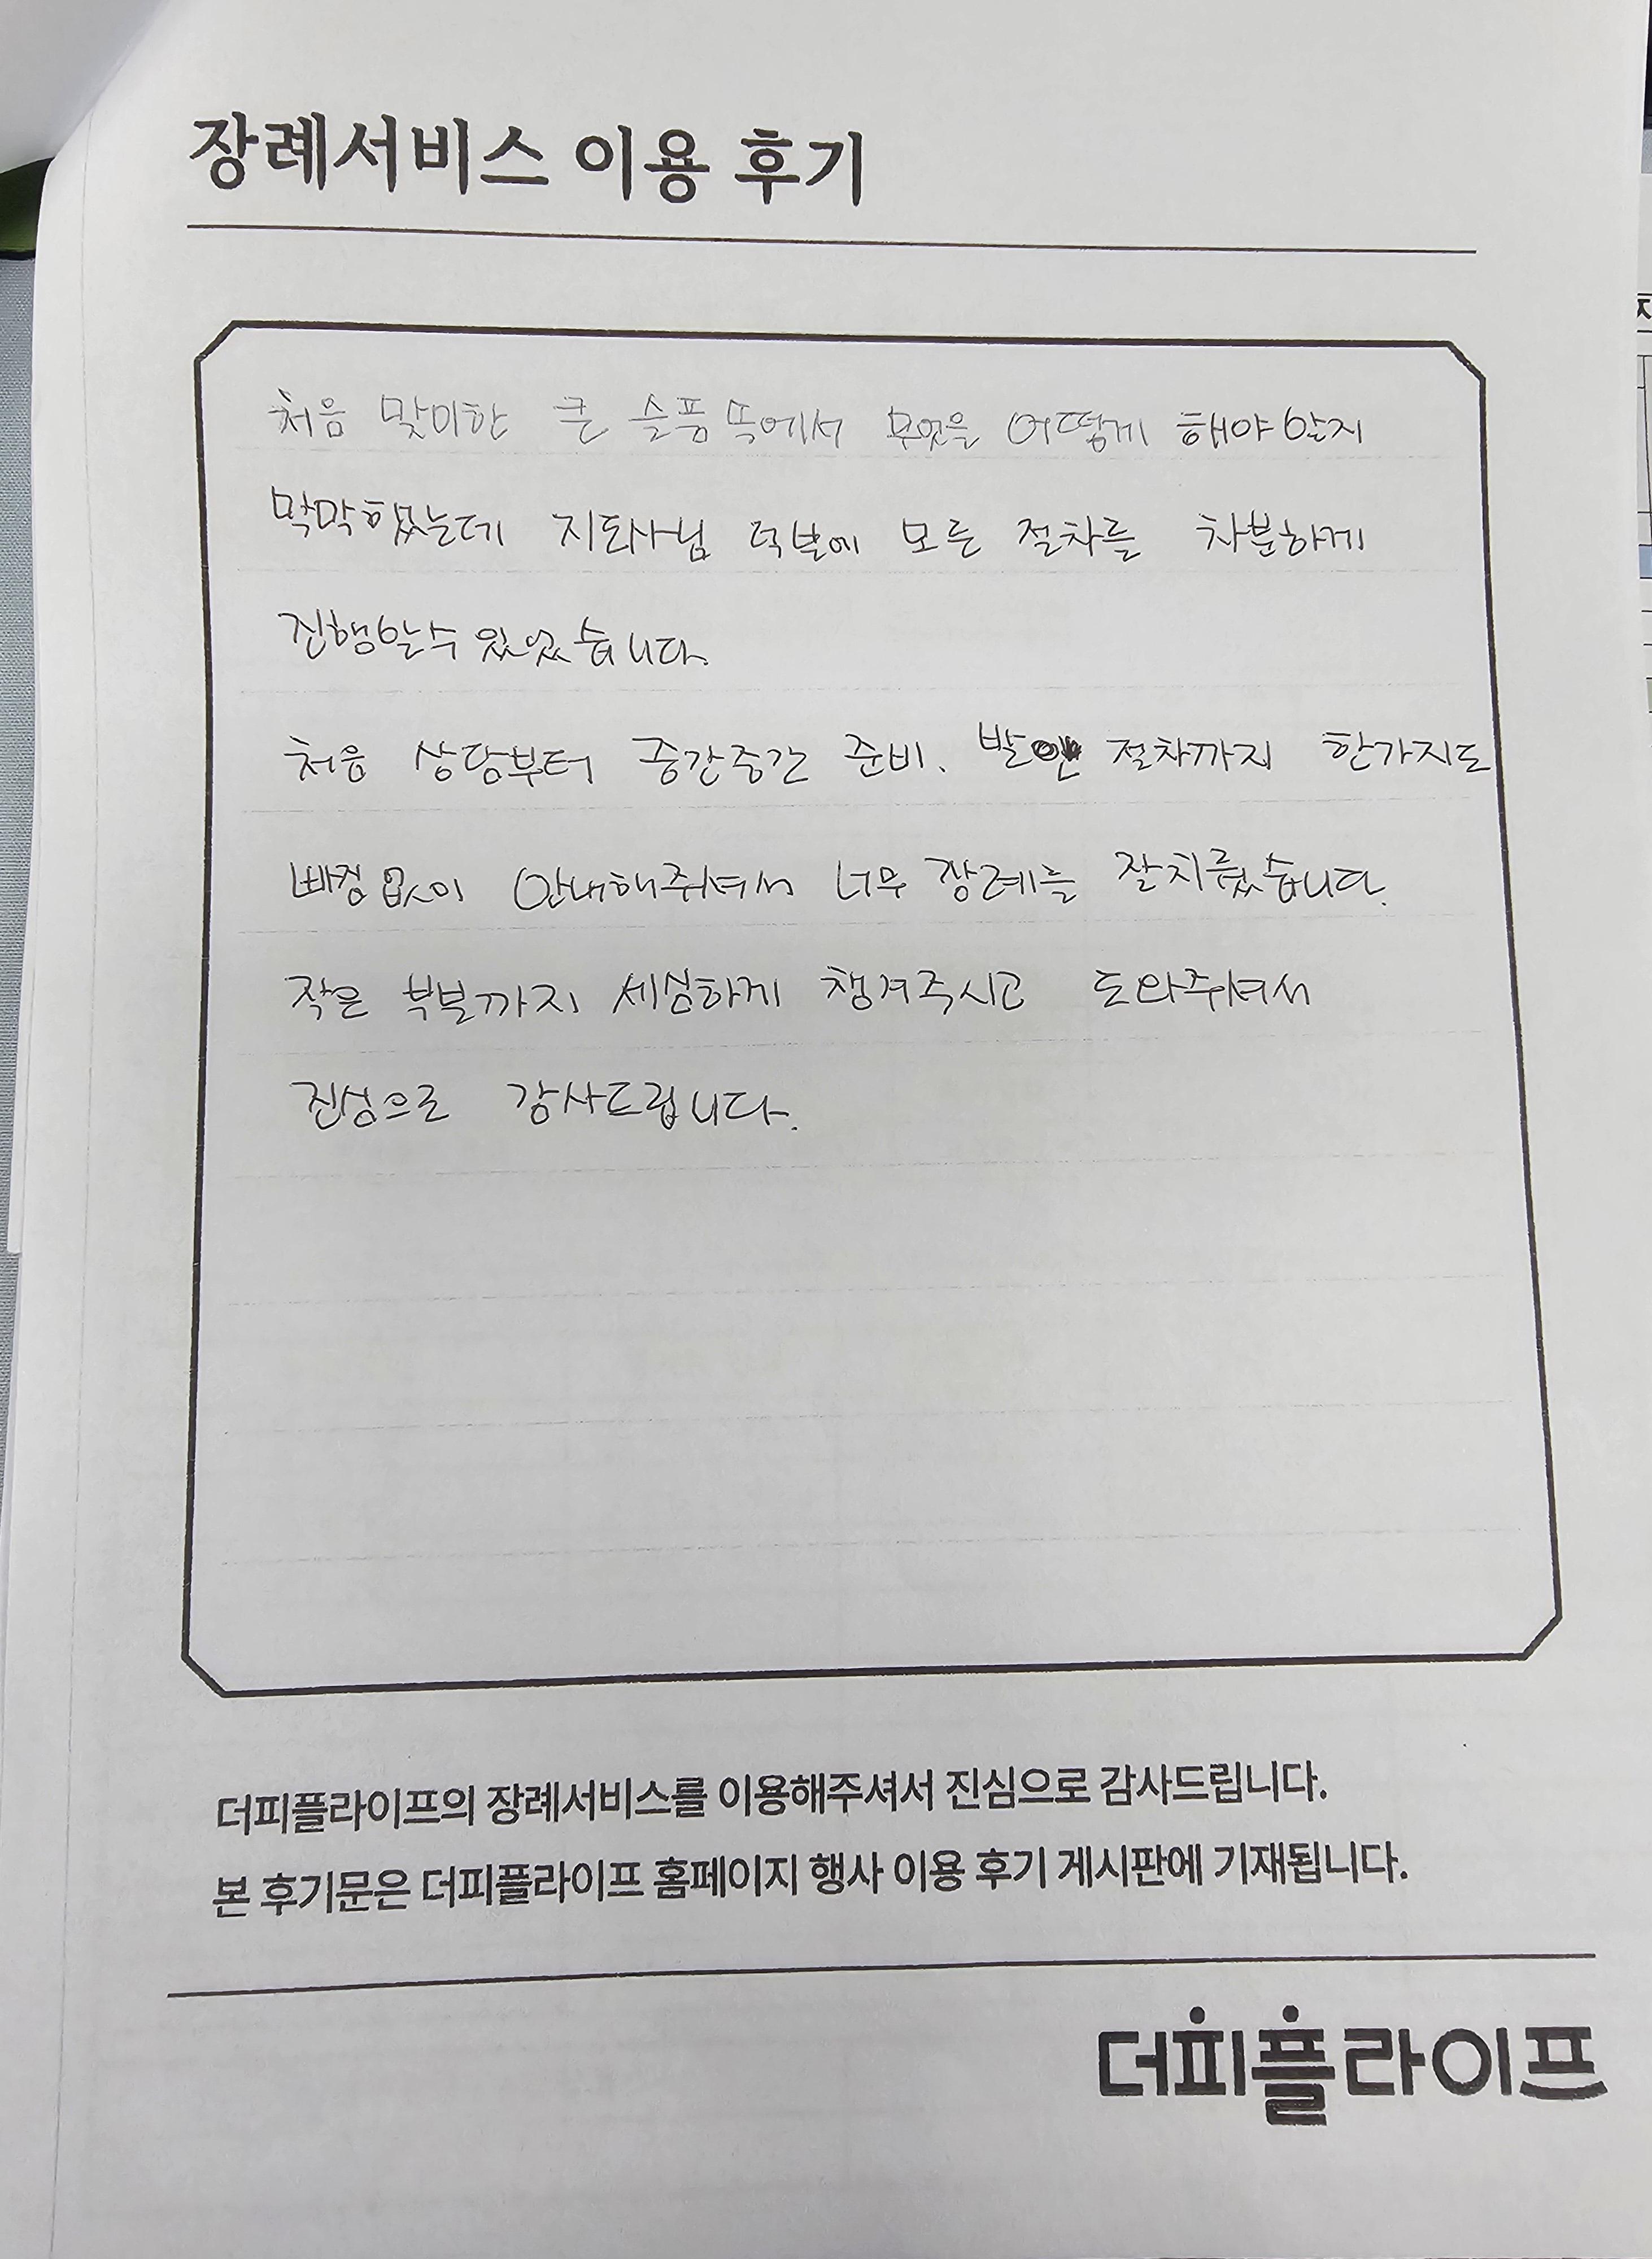 장례서비스 이용 후기
처음 맞이한 큰 슬픔 속에서 무엇을 어떻게 해야할지
막막했는데 지도사님 덕분에 모든 절차를 차분하게
진행할수 있었습니다.
처음 상담부터 중간중간 준비. 발인 절차까지 한가지도
빠짐 없이 안내해주셔서 너무 장례를 잘치뤘습니다.
작은 부분까지 세심하게 챙겨주시고 도와주셔서
진심으로 감사드립니다.
더피플라이프의 장례서비스를 이용해주셔서 진심으로 감사드립니다.
본 후기문은 더피플라이프 홈페이지 행사 이용 후기 게시판에 기재됩니다.
더피플라이프